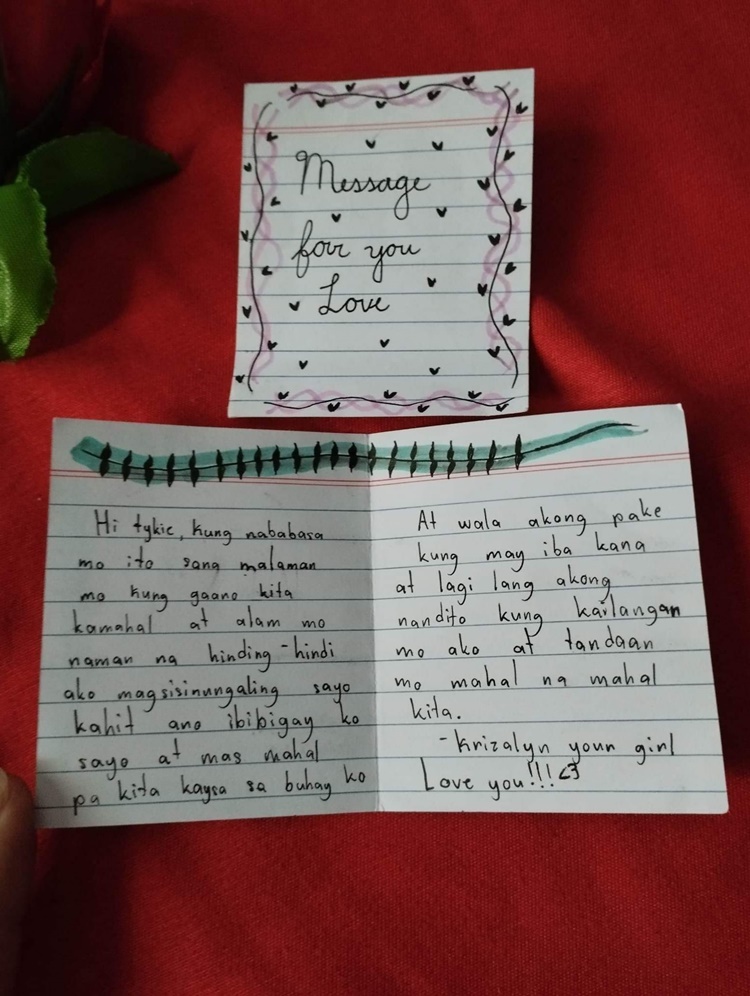 Message
for you
Love
Hi tykie, kung nababasa
mo ito sana malaman
mo kung gaano kita
kamahal at alam mo
naman na hinding-hindi
ako magsisinungaling sayo
kahit ano ibibigay ko
sayo at mas mahal
pa kita kaysa sa buhay ko
At wala akong pake
kung may iba kana
at lagi lang akong
nandito kung kailangan
mo ako at tandaan
mo mahal na mahal
kita.
-Krizalyn your girl
Love you!!! <3